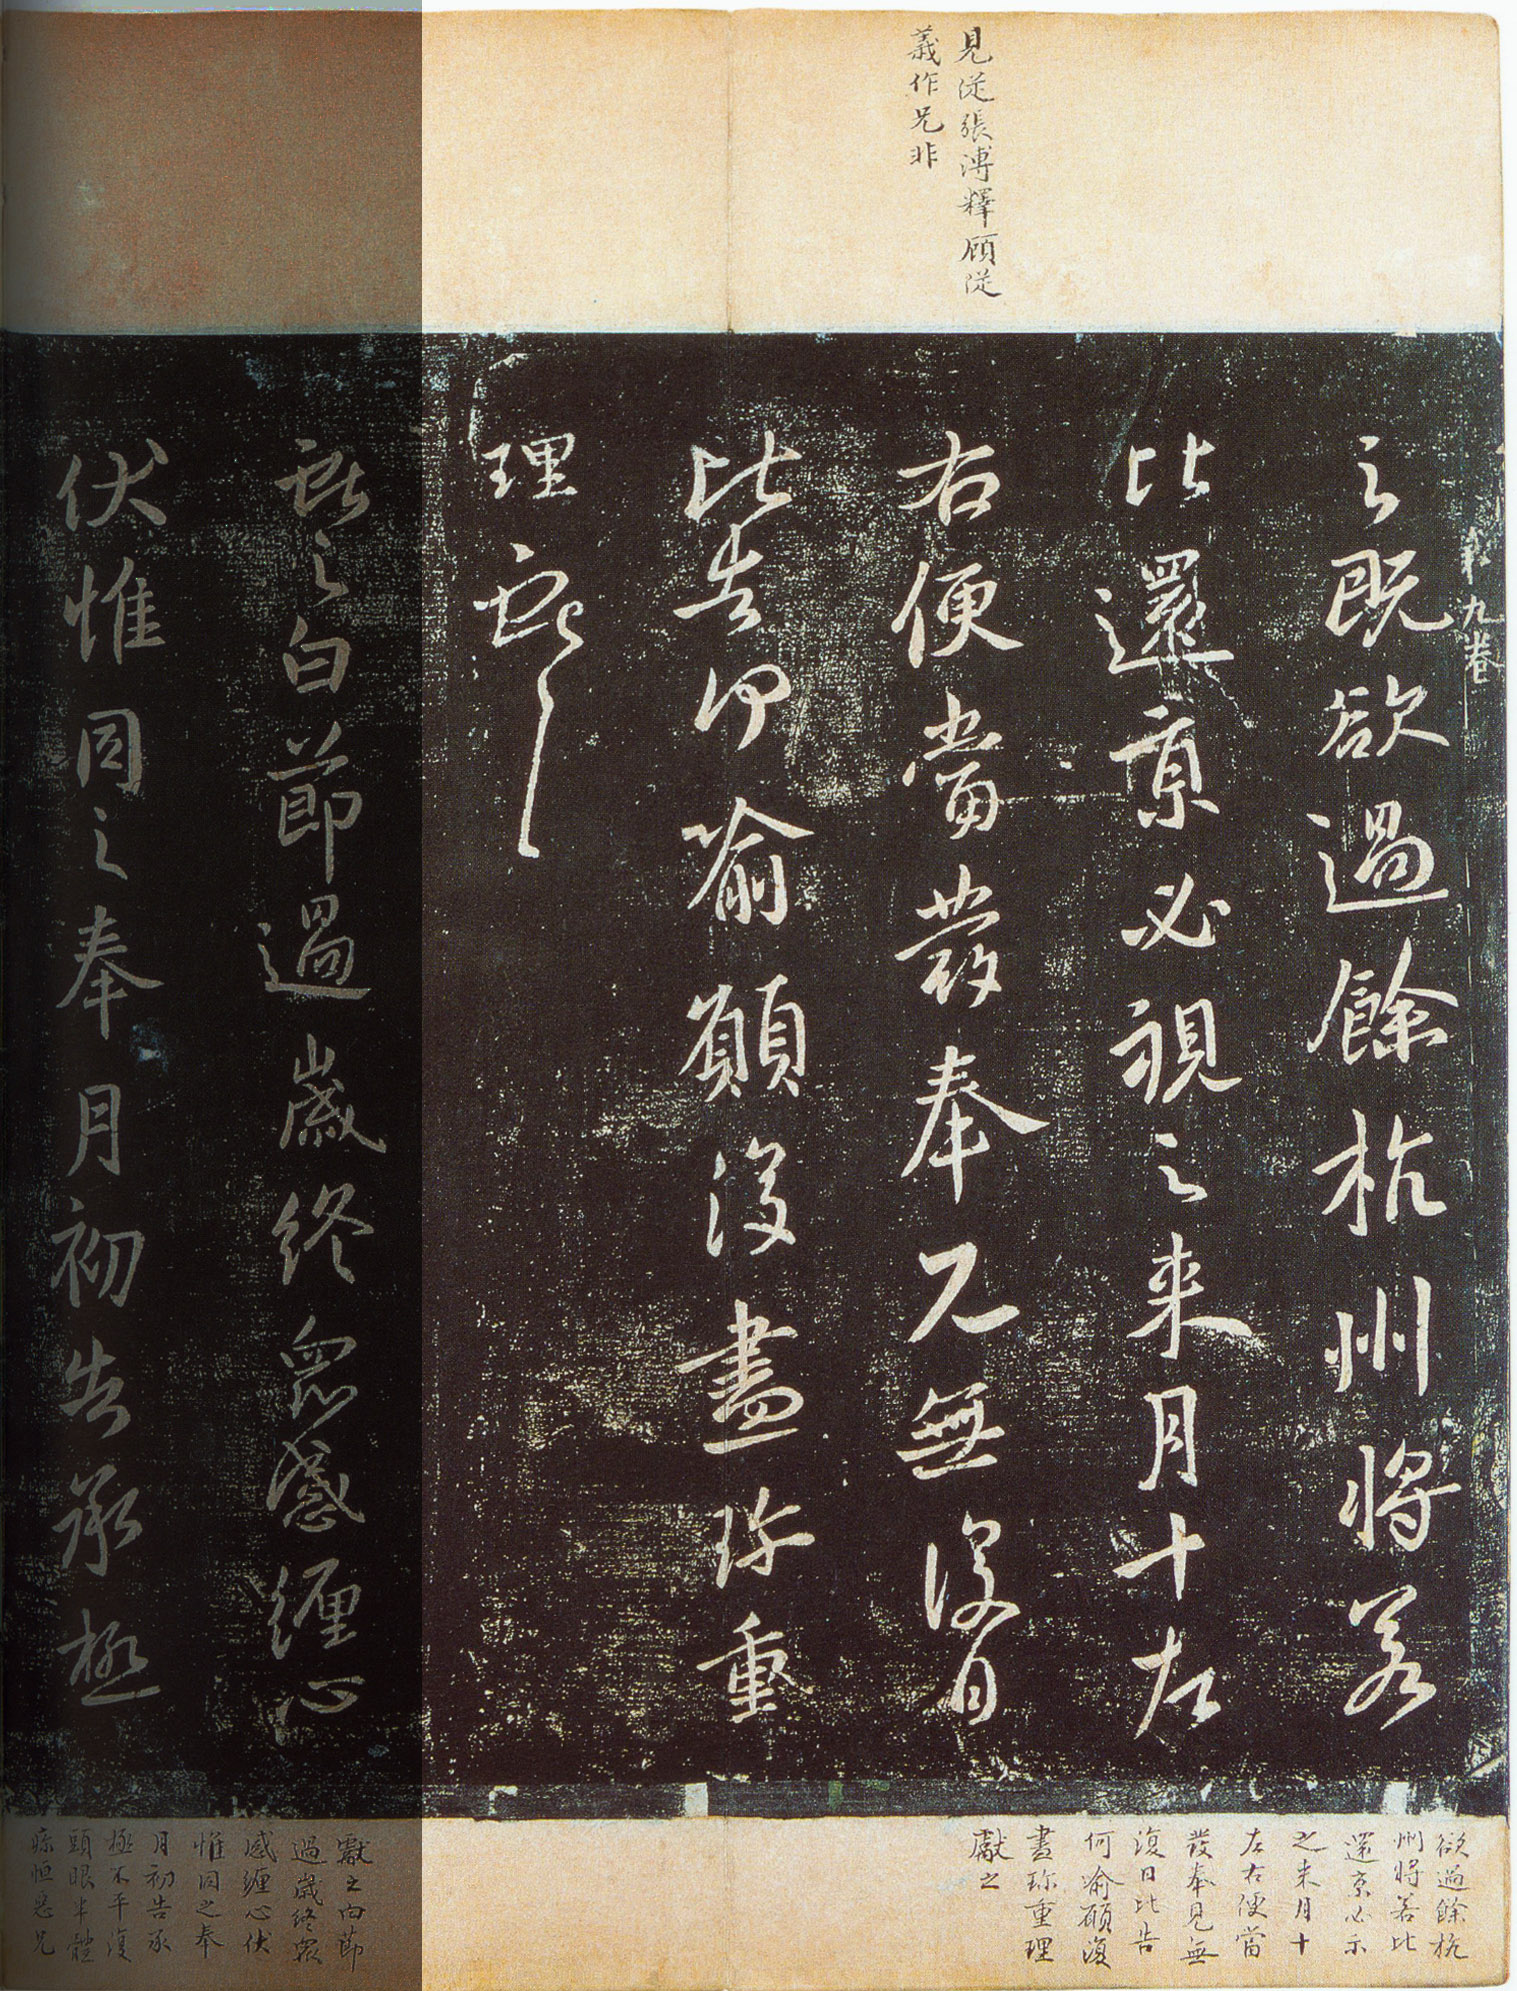 見従張溥釋顧従
義作兄非
第九卷
之既欲過餘杭州將若
比還京必視之来月十左
右便當發奉見無復日
比告何喻願復盡珎重
理獻之
獻之白節過歲終衆感纏心
伏惟同之奉月初告承極
欲過餘杭
州將若比
還京必示
之来月十
左右便當
發奉見無
復日比告
何喻願復
盡珎重理
獻之
獻之白節
過歲終衆
感纏心伏
惟同之奉
月初告承
極不平復
頭眼半體
疼恒惡兄